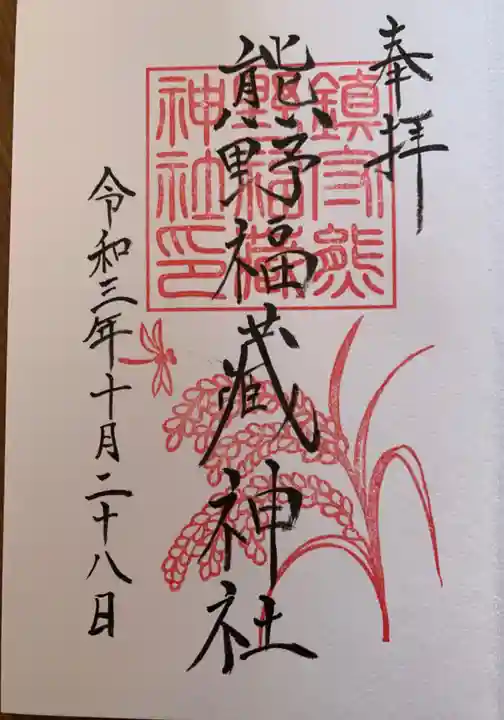 奉拝
熊野福藏神社
鎮守熊
野福藏
神社印
令和三年十月二十八日